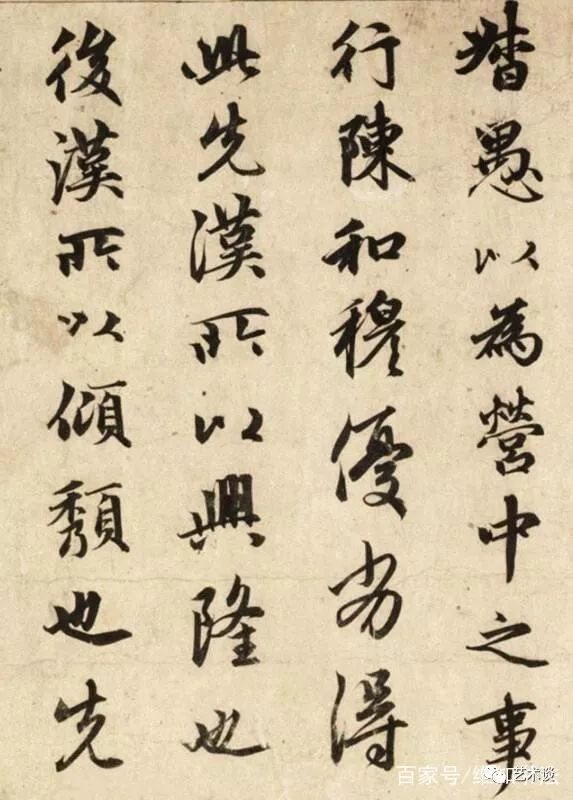 督愚以為營中之事
行陳和穆優劣得
此先漢所以興隆也
後漢所以傾頹也先
百家号/
艺术谈